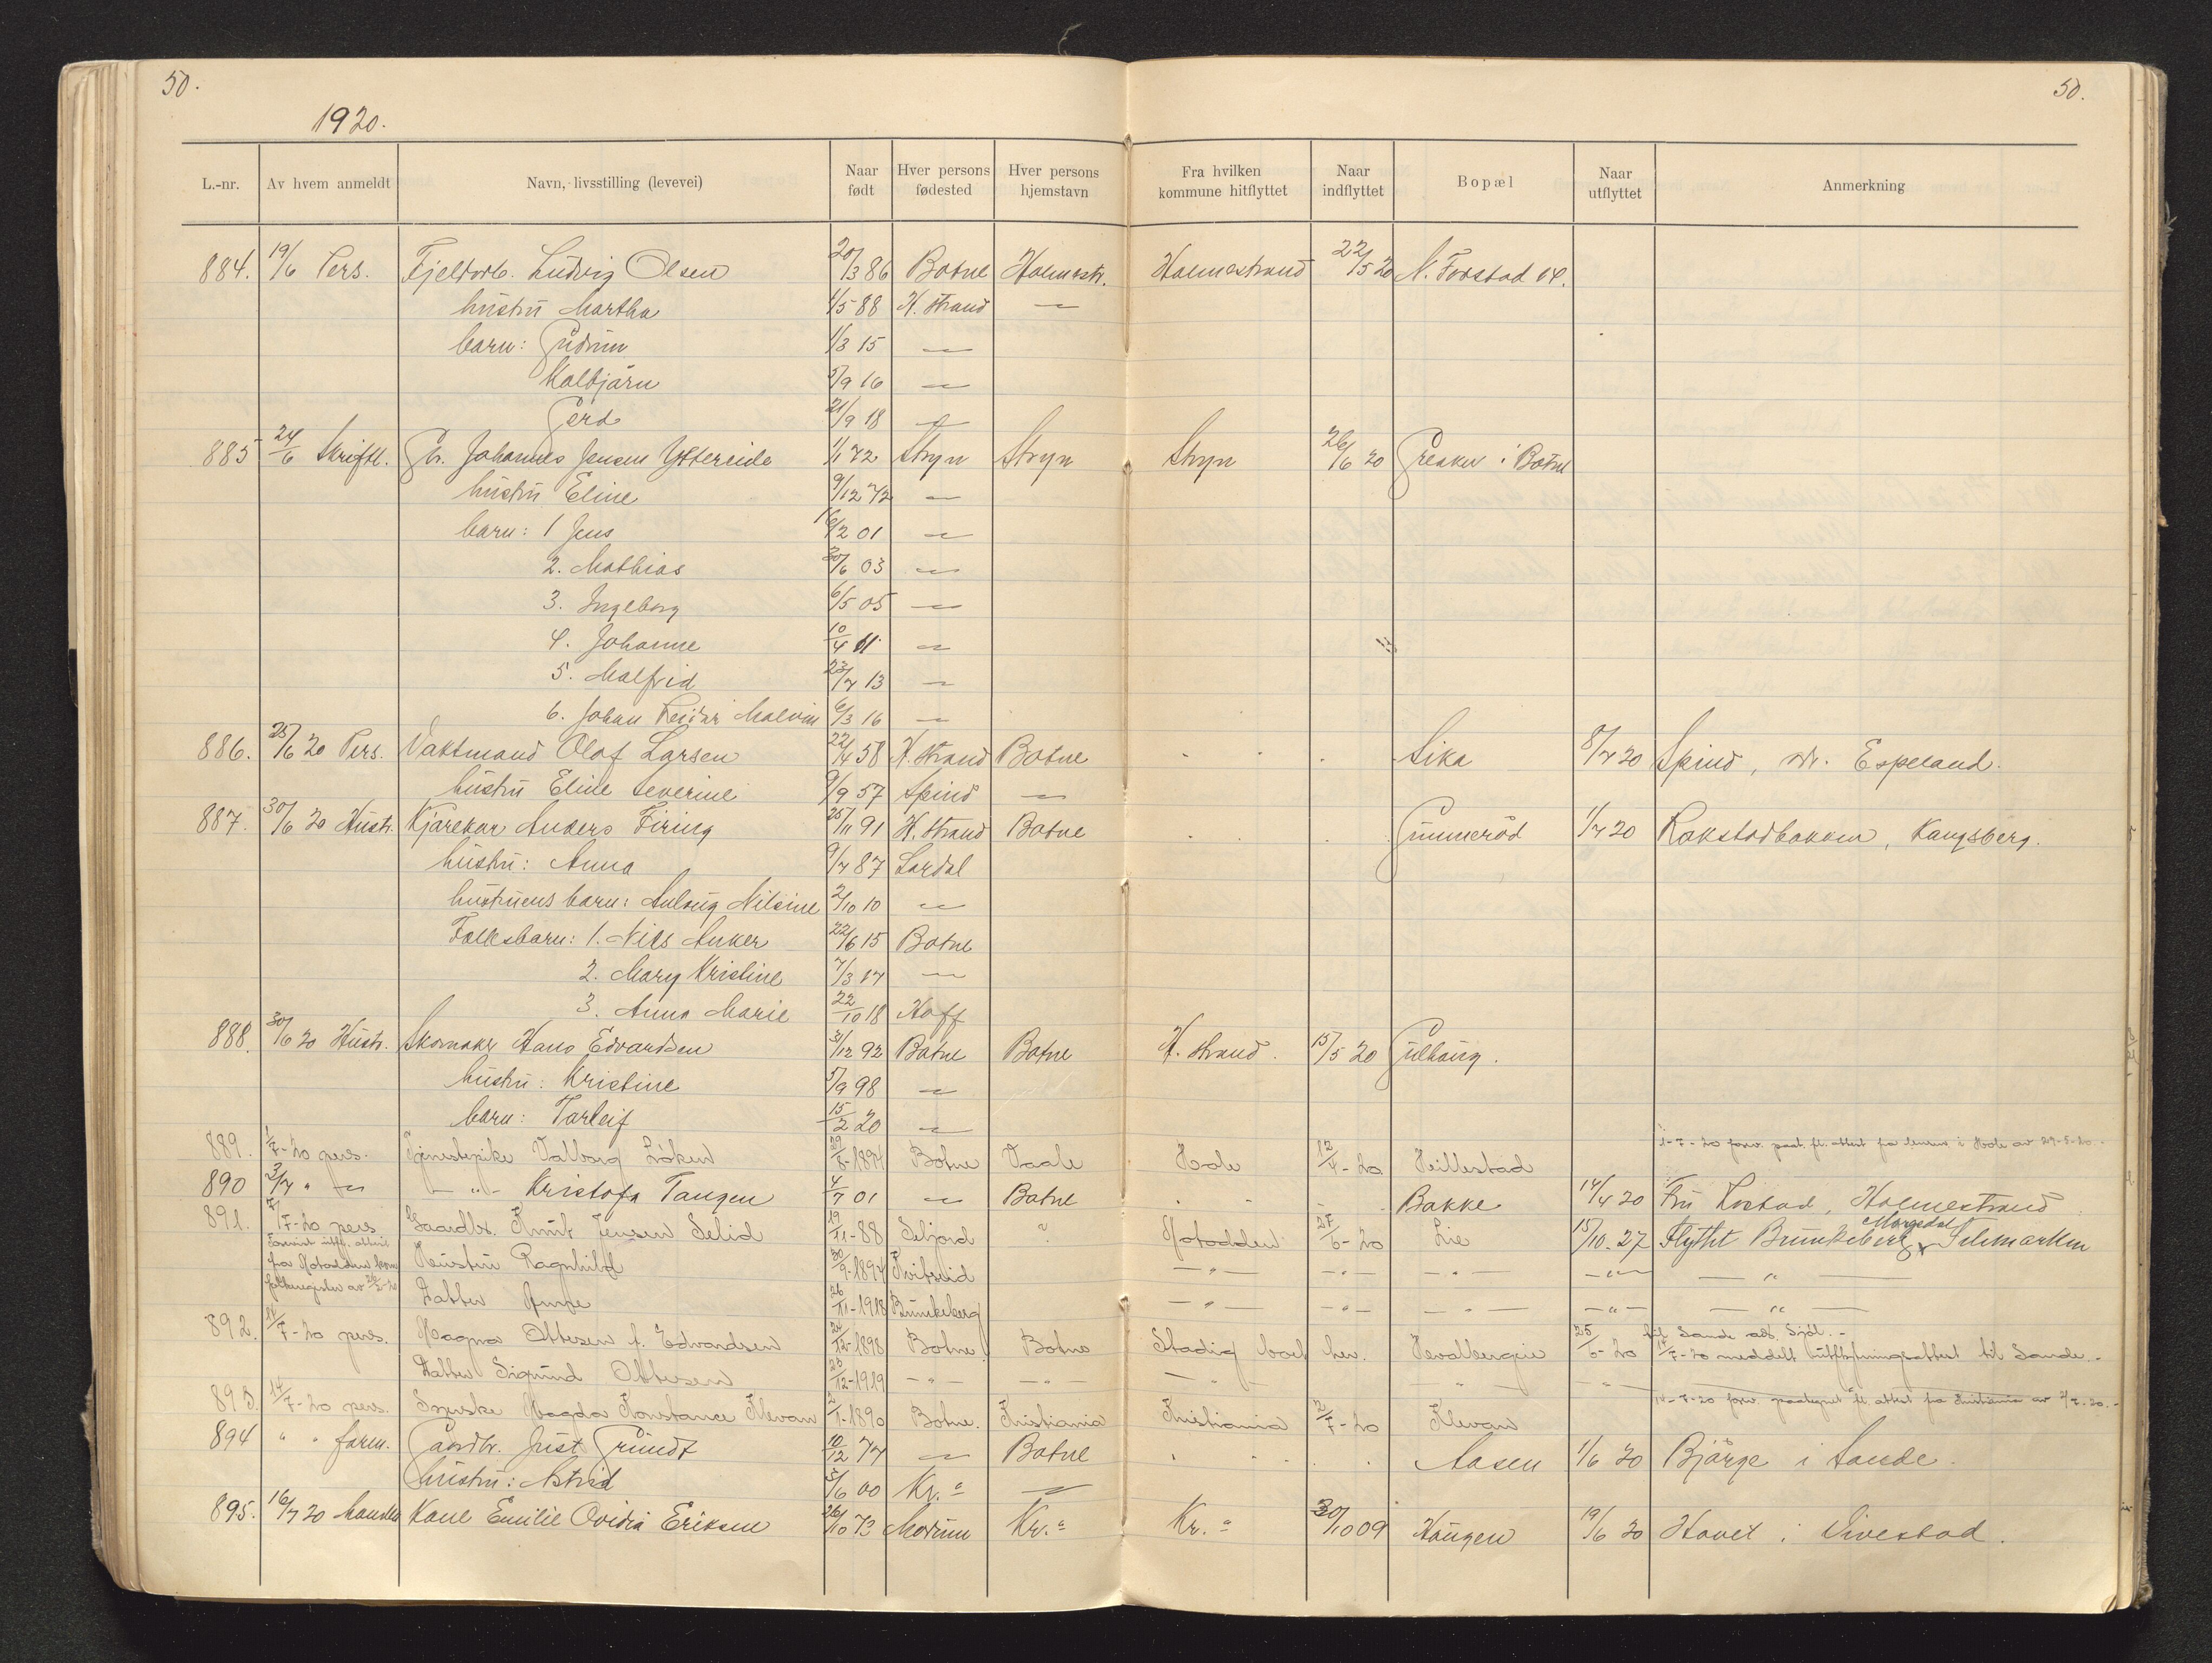 50.
50.
1920.
L.-nr. Av hvem anmeldt Navn, livsstilling (levevei) Naar født Hver persons fødested Hver persons hjemstavn Fra hvilken kommune hitflyttet Naar indflyttet Bopæl Naar utflyttet Anmerkning
884. 19/6 Pers. Fjeldarb. Ludvig Olsen 20/3 86 Botne Holmestr. Holmestrand 22/5 20 N. Forstad 14.
hustru Martha 1/5 88 H. strand —
barn: Gudrun 1/3 15 —
Kolbjörn 5/9 16 —
Gerd 21/9 18 —
885 24/6 Skriftl. Gb. Johannes Jensen Yttereide 1/1 72 Stryn Stryn Stryn 26/6 20 Greaker i Botne
hustru Eline 9/12 72 —
barn: 1 Jens 16/2 01 —
2. Mathias 30/6 03 —
3. Ingeborg 6/5 05 —
4. Johanne 10/4 11 —
5. Malfrid 23/7 13 —
6. Johan Reidar Malvin 6/3 16 —
886. 25/6 20 Pers. Vaktmand Olaf Larsen 22/4 58 H. strand Botne Sika 8/7 20 Spind, st. Espeland.
hustru Eline Severine 9/9 57 Spind —
887. 30/6 20 Hustr. Kjörekar Anders Firing 25/11 91 H. strand Botne Gunneröd 1/7 20 Rakstadbakken, Kongsberg.
hustru: Anna 9/7 87 Lardal
hustruens barn: Aslaug Nilsine 2/10 10 —
Fællesbarn: 1. Nils Anker 22/6 15 Botne
2. Mary Kristine 7/3 17 —
3. Anna Marie 22/10 18 Hoff
888. 30/6 20 Hustr. Skomaker Hans Edvardsen 31/12 92 Botne Botne H. strand. 15/5 20 Gulhaug.
hustru: Kristine 5/9 98 —
barn: Torleif 15/2 20 —
889. 1/7-20 pers. Tjenestepike Valborg Löken 29/8-1894 Botne Vaale Hole 12/4-20 Hillestad 1-7-20 forev. paat. fl. attest fra lensm. i Hole av 29-5-20.-
890 3/7 " — — " - Kristofa Tangen 4/7 01 — Botne Bakke 14/4 20 Fru Rostad, Holmestrand
891. 7/7-20 pers. Gaardbr. Knut Jensen Selid 19/11-88 Seljord " Notodden 27/6-20 Lie 15/10-27 Flyttet Brunkeberg, Morgedal Telemarken
Hustru Ragnhild 30/9-1894 Kvitseid — " — — " — — " — — " — — " —
fra Notodden kom. folkeregister av
Datter Anne 26/11-1918 Brunkeberg — " — — " — — " — — " — — " —
892. 14/7-20 pers. Magna Ottersen f. Edvardsen 24/12-1898 Botne Botne Stadig boet her. Hvalbergvie 25/6-20 til Sande ads. Sjöl.- 14/7-20 meddelt utflytningsattest til Sande.-
Datter Sigrund Ottersen 23/12-1919 — " — — " — — " — — " — — " —
893. 14/7-20 pers. Syerske Magda Konstance Klevan 2/1-1890 Botne. Kristiania Kristiania 2/7-20 Klevan 14-7-20 forev. paategnet fl. attest fra Kristiania av 2/7-20.-
894 " " form. Gaardbr. Just Grundt 10/12 77 — Botne Aasen 1/6 20 Bjärge i Sande.
hustru: Astrid 5/6 00 Kr.a —
895. 16/7 20 Kone Emilie Ovidia Eriksen 26/10 72 Modum Kr.a Kr.a 30/10 09 Haugen 19/6 20 Hovet i Vivestad.